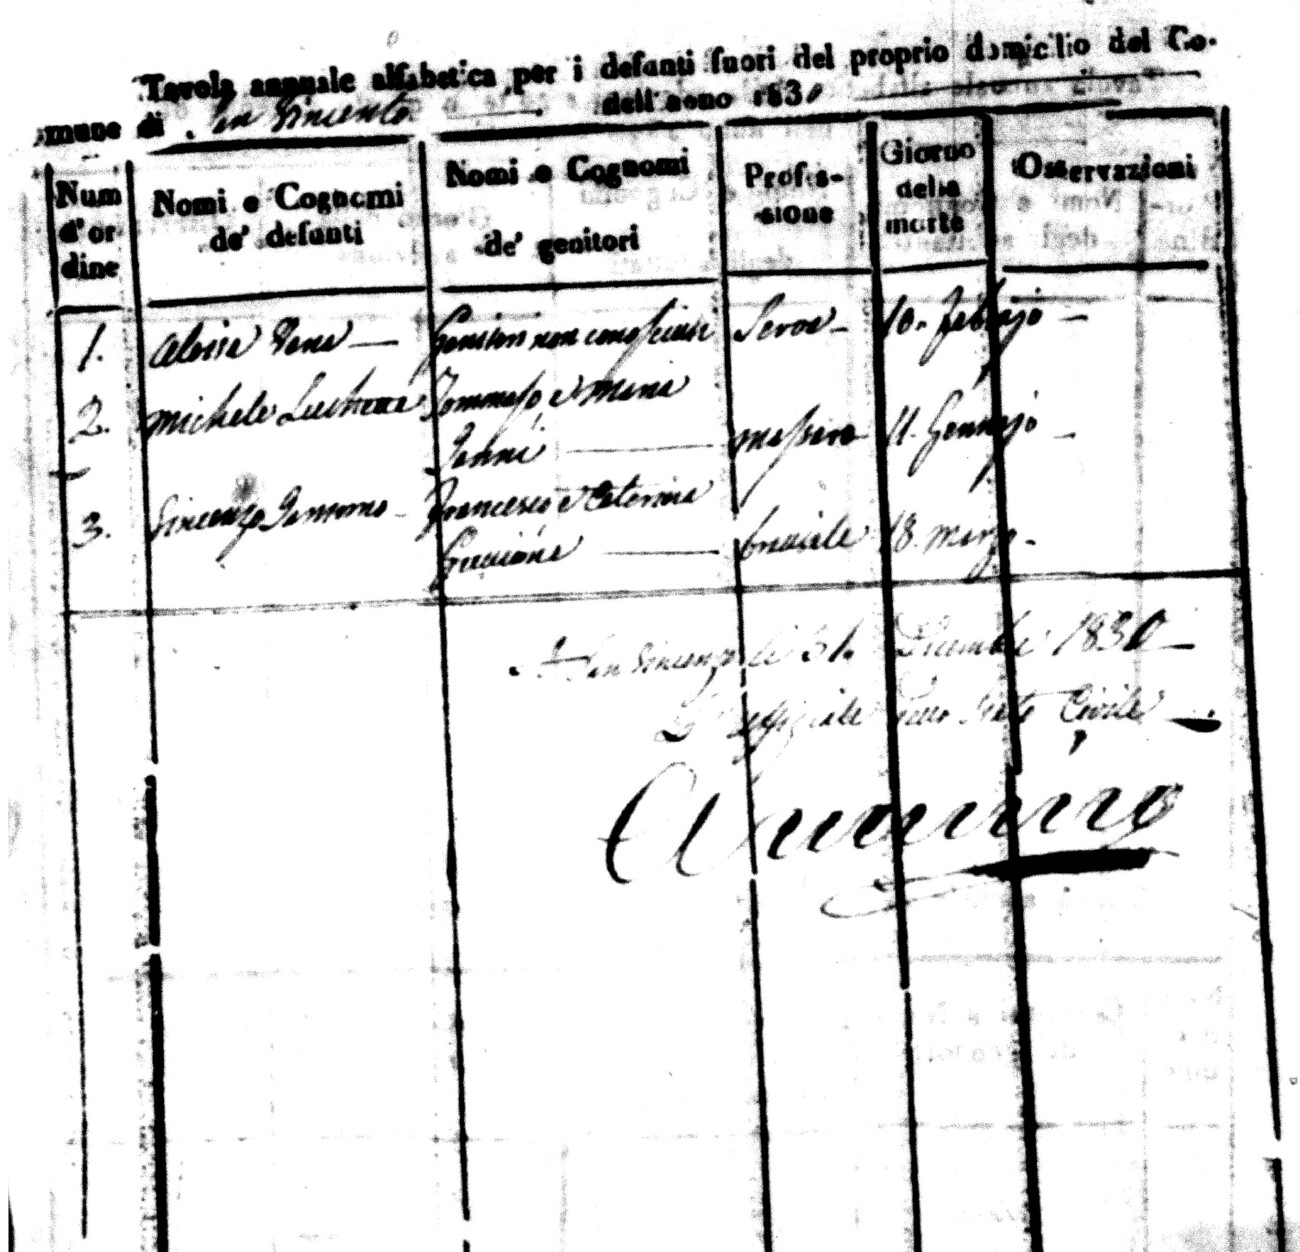 Tavola annuale alfabetica per i defunti fuori del proprio domicilio del Co-
mune di San Vincenzo dell'anno 1830
Num d'or dine
Nomi e Cognomi de' defunti
Nomi e Cognomi de' genitori
Profes-sione
Giorno della morte
Osservazioni
1. Aloisa Genitori non conosciuti Serva 10. Febrajo
2. Michele Tommaso e Maria
Massaro 11. Gennajo
3. Vincenzo Francesco e Caterina
bracciale 18. Marzo
A San Vincenzo li 31. Dicembre 1830
L'uffiziale dello Stato Civile